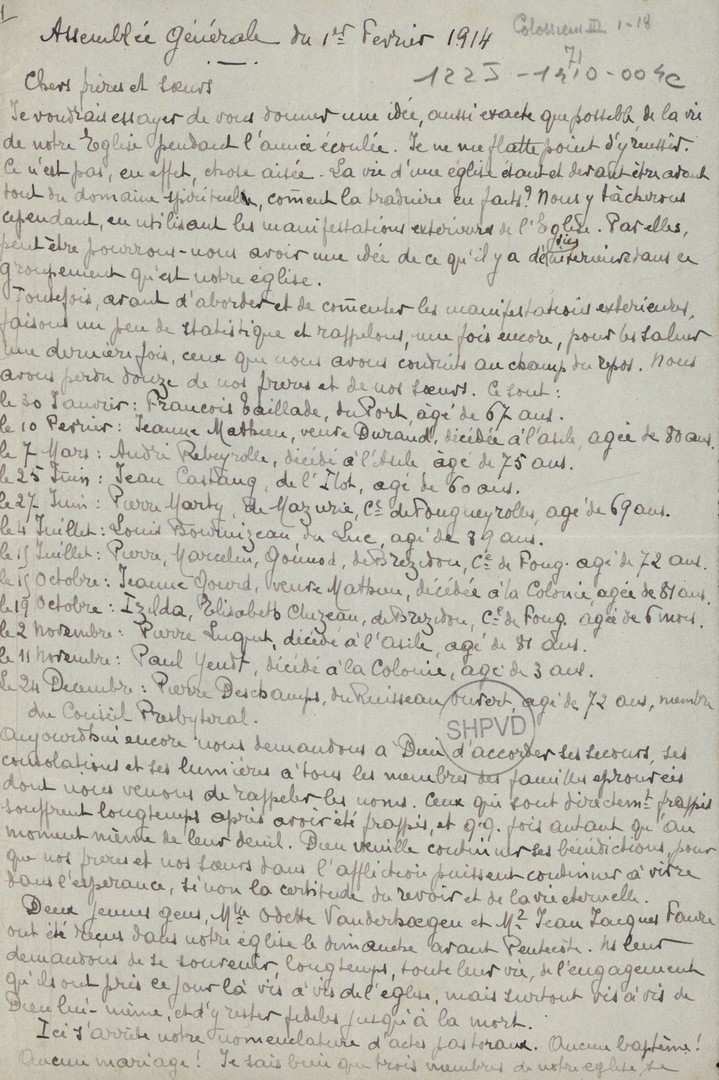 1
Assemblée Générale du 1er Fevrier 1914
Colossiens III 1-18
71
122J-1410-004c
Chers frères et sœurs
Je voudrais essayer de vous donner une idée, aussi exacte que possible de la vie
de notre Eglise pendant l'année écoulée. Je ne me flatte point d'y réussir.
Ce n'est pas, en effet, chose aisée. La vie d'une église étant et devant être avant
tout du domaine spirituel, coment la traduire en faits? Nous y tâcherons
cependant, en utilisant les manifestations exterieures de l'Eglise. Par elles,
peut être pourrons-nous avoir une idée de ce qu'il y a de vie interieure dans ce
groupement qu'est notre église.
Toutefois, avant d'aborder et de comenter les manifestations exterieures,
faisons un peu de statistique et rappelons, une fois encore, pour les saluer
une dernière fois, ceux que nous avons conduits au champ du repos. Nous
avons perdu douze de nos freres et de nos sœurs. Ce sont:
le 30 Janvier: François Taillade, du Port, âgé de 67 ans.
le 10 Fevrier: Jeanne Mathieu, veuve Durand, décédée à l'asile, agée de 80 ans.
le 7 Mars: André Rebeyrolle, décédé à l'Asile âgé de 75 ans.
le 25 Juin: Jean Castang, de l'Ilot, agé de 60 ans.
le 27 Juin: Pierre Marty, de Mazurie, Cne de Fougueyrolles, agé de 69 ans.
le 4 Juillet: Louis du Luc, agé de 89 ans.
le 15 Juillet: Pierre, Marcelin, Goinod, de Brezidon, Cne de Foug. agé de 72 ans.
le 15 Octobre: Jeanne Gourd, veuve Mathieu, décédée à la Colonie, agée de 81 ans.
le 19 Octobre: Izelda, Elisabeth Cluzeau, de Brezidon, Cne de Foug. âgée de 6 mois.
le 2 Novembre: Pierre décédé à l'asile, agé de 81 ans.
le 11 Novembre: Paul Yendt, décédé à la Colonie, agé de 3 ans.
Le 24 Decembre: Pierre Deschamps, du Ruisseau ouvert, agé de 72 ans, membre
du Conseil Presbyteral.
SHPVD
Aujourd'hui encore nous demandons a Dieu d'accorder ses secours, ses
consolations et ses lumières à tous les membres des familles eprouvées
dont nous venons de rappeler les noms. Ceux qui sont directemt frappés
souffrent longtemps après avoir été frappés, et q.q. fois autant qu'au
moment même de leur deuil. Dieu veuille continuer ses bénédictions, pour
que nos freres et nos sœurs dans l'affliction puissent continuer à vivre
dans l'esperance, si non la certitude du revoir et de la vie eternelle.
Deux jeunes gens, Mlle Odette Vanderhaegen et Mr Jean Jacques Faure
ont été reçus dans notre église le dimanche avant Pentecôte. Ns leur
demandons de se souvenir, longtemps, toute leur vie, de l'engagement
qu'ils ont pris ce jour là vis à vis de l'eglise, mais surtout vis à vis de
Dieu lui-même, et d'y rester fideles jusqu'à la mort.
Ici s'arrête notre nomenclature d'actes pastoraux. Aucun baptême!
Aucun mariage! Je sais bien que trois membres de notre eglise, se